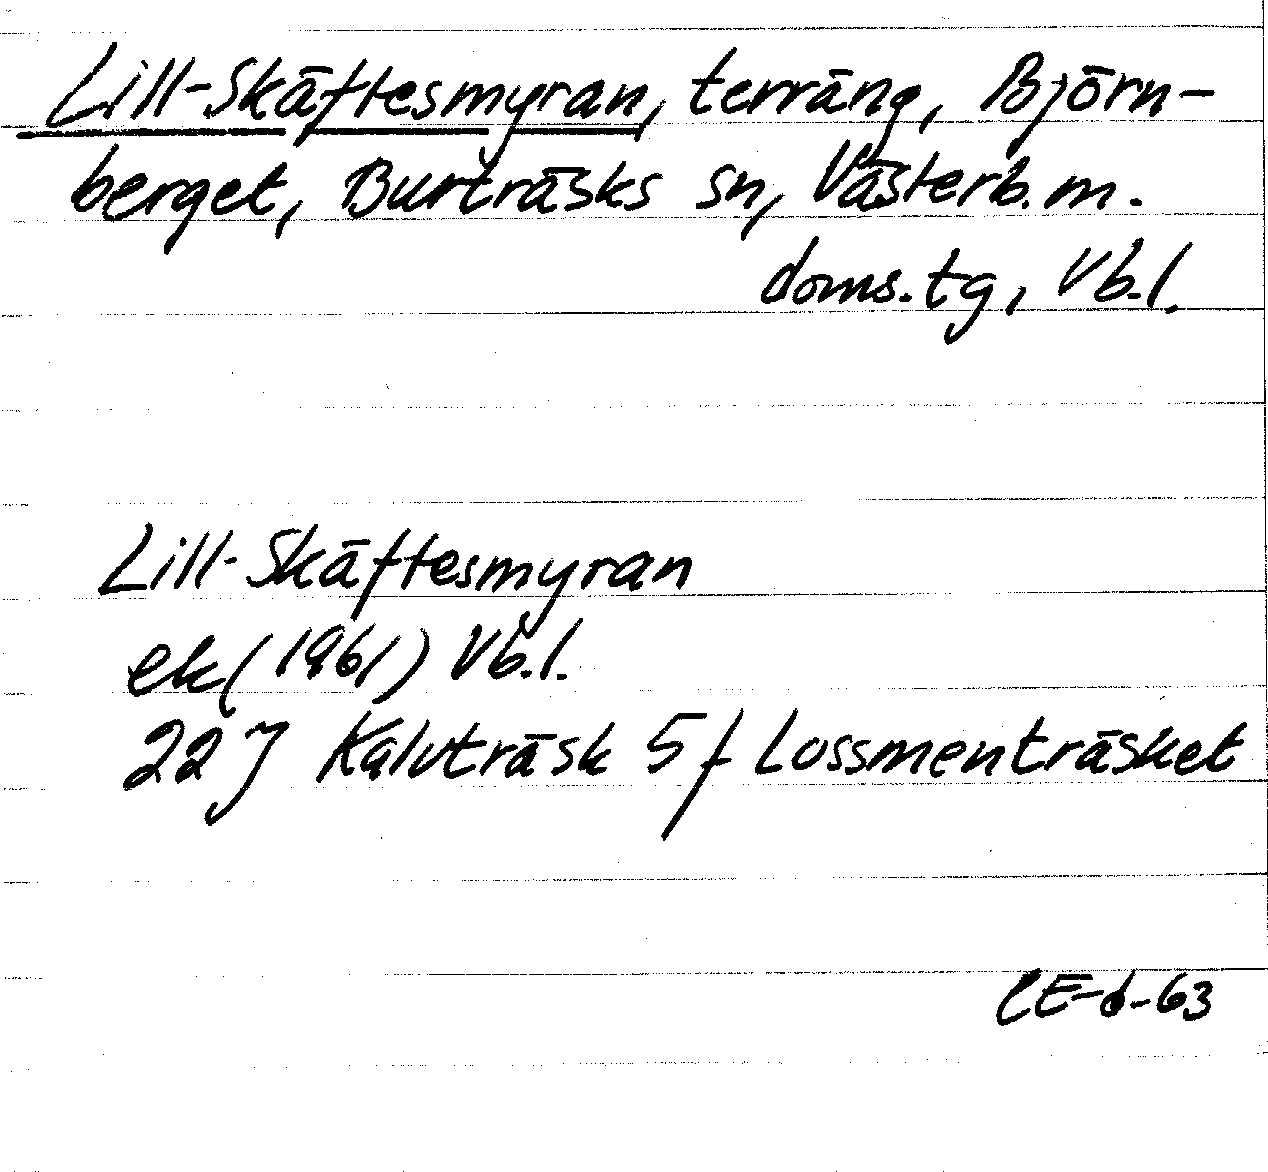 Lill-Skäftesmyran, terräng, Björn-
berget, Burträsks sn, Västerb.m.
doms.tg, Vb.l.
Lill-Skäftesmyran
ek (1961) Vb.l.
22 J Kalvträsk 5 f Lossmenträsket
CE-d-63